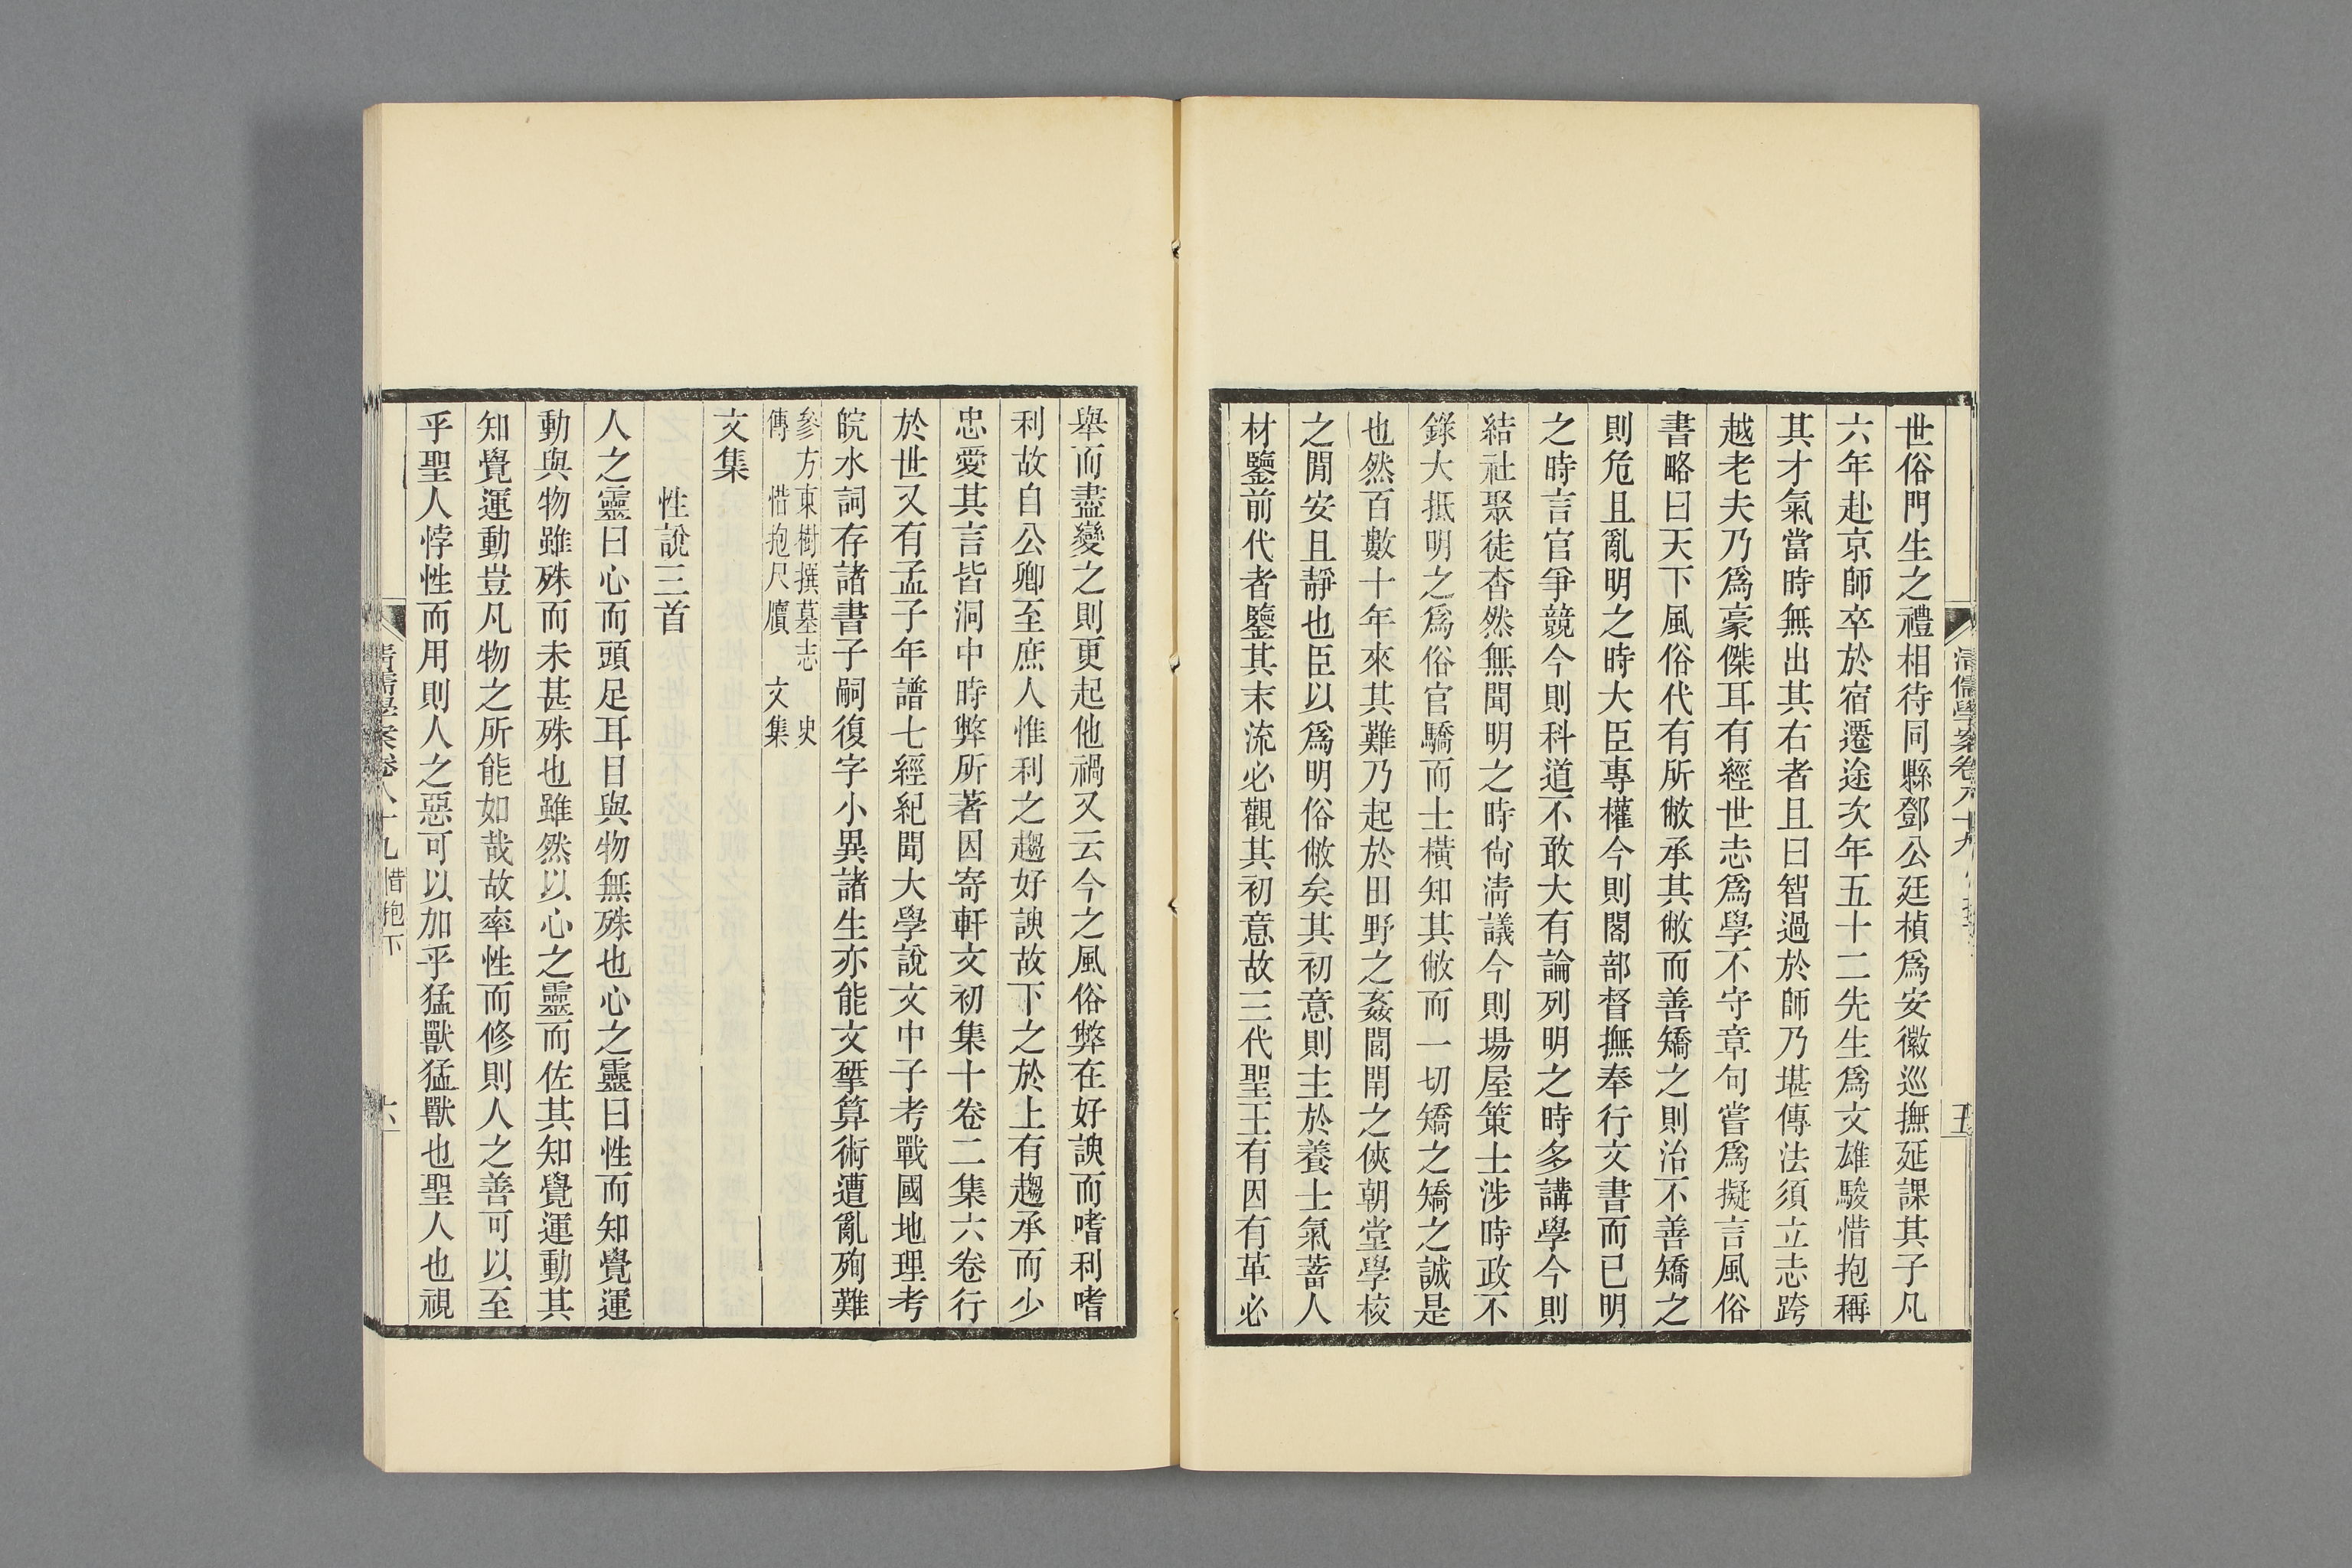 世俗門生之禮相待同縣鄧公廷楨爲安徽巡撫延課其子凡
六年赴京師卒於宿遷途次年五十二先生爲文雄駿惜抱稱
其才氣當時無出其右者且曰智過於師乃堪傳法須立志跨
越老夫乃爲豪傑耳有經世志爲學不守章句嘗爲擬言風俗
書略曰天下風俗代有所敝承其敝而善矯之則治不善矯之
則危且亂明之時大臣專權今則閣部督撫奉行文書而已明
之時言官爭競今則科道不敢大有論列明之時多講學今則
結社聚徒杳然無聞明之時尙清議今則場屋策士涉時政不
錄大抵明之爲俗官驕而士橫知其敝而一切矯之矯之誠是
也然百數十年來其難乃起於田野之姦閭閈之俠朝堂學校
之閒安且靜也臣以爲明俗敝矣其初意則主於養士氣蓄人
材鑒前代者鑒其末流必觀其初意故三代聖王有因有革必
清儒學案卷八十九
五
舉而盡變之則更起他禍又云今之風俗弊在好諛而嗜利嗜
利故自公卿至庶人惟利之趨好諛故下之於上有趨承而少
忠愛其言皆洞中時弊所著因寄軒文初集十卷二集六卷行
於世又有孟子年譜七經紀聞大學說文中子考戰國地理考
皖水詞存諸書子嗣復字小異諸生亦能文揅算術遭亂殉難
參方東樹撰墓志 史
傳 惜抱尺牘 文集
文集
性說三首
人之靈曰心而頭足耳目與物無殊也心之靈曰性而知覺運
動與物雖殊而未甚殊也雖然以心之靈而佐其知覺運動其
知覺運動豈凡物之所能如哉故率性而修則人之善可以至
乎聖人悖性而用則人之惡可以加乎猛獸猛獸也聖人也視
清儒學案卷八十九 惜抱下
六